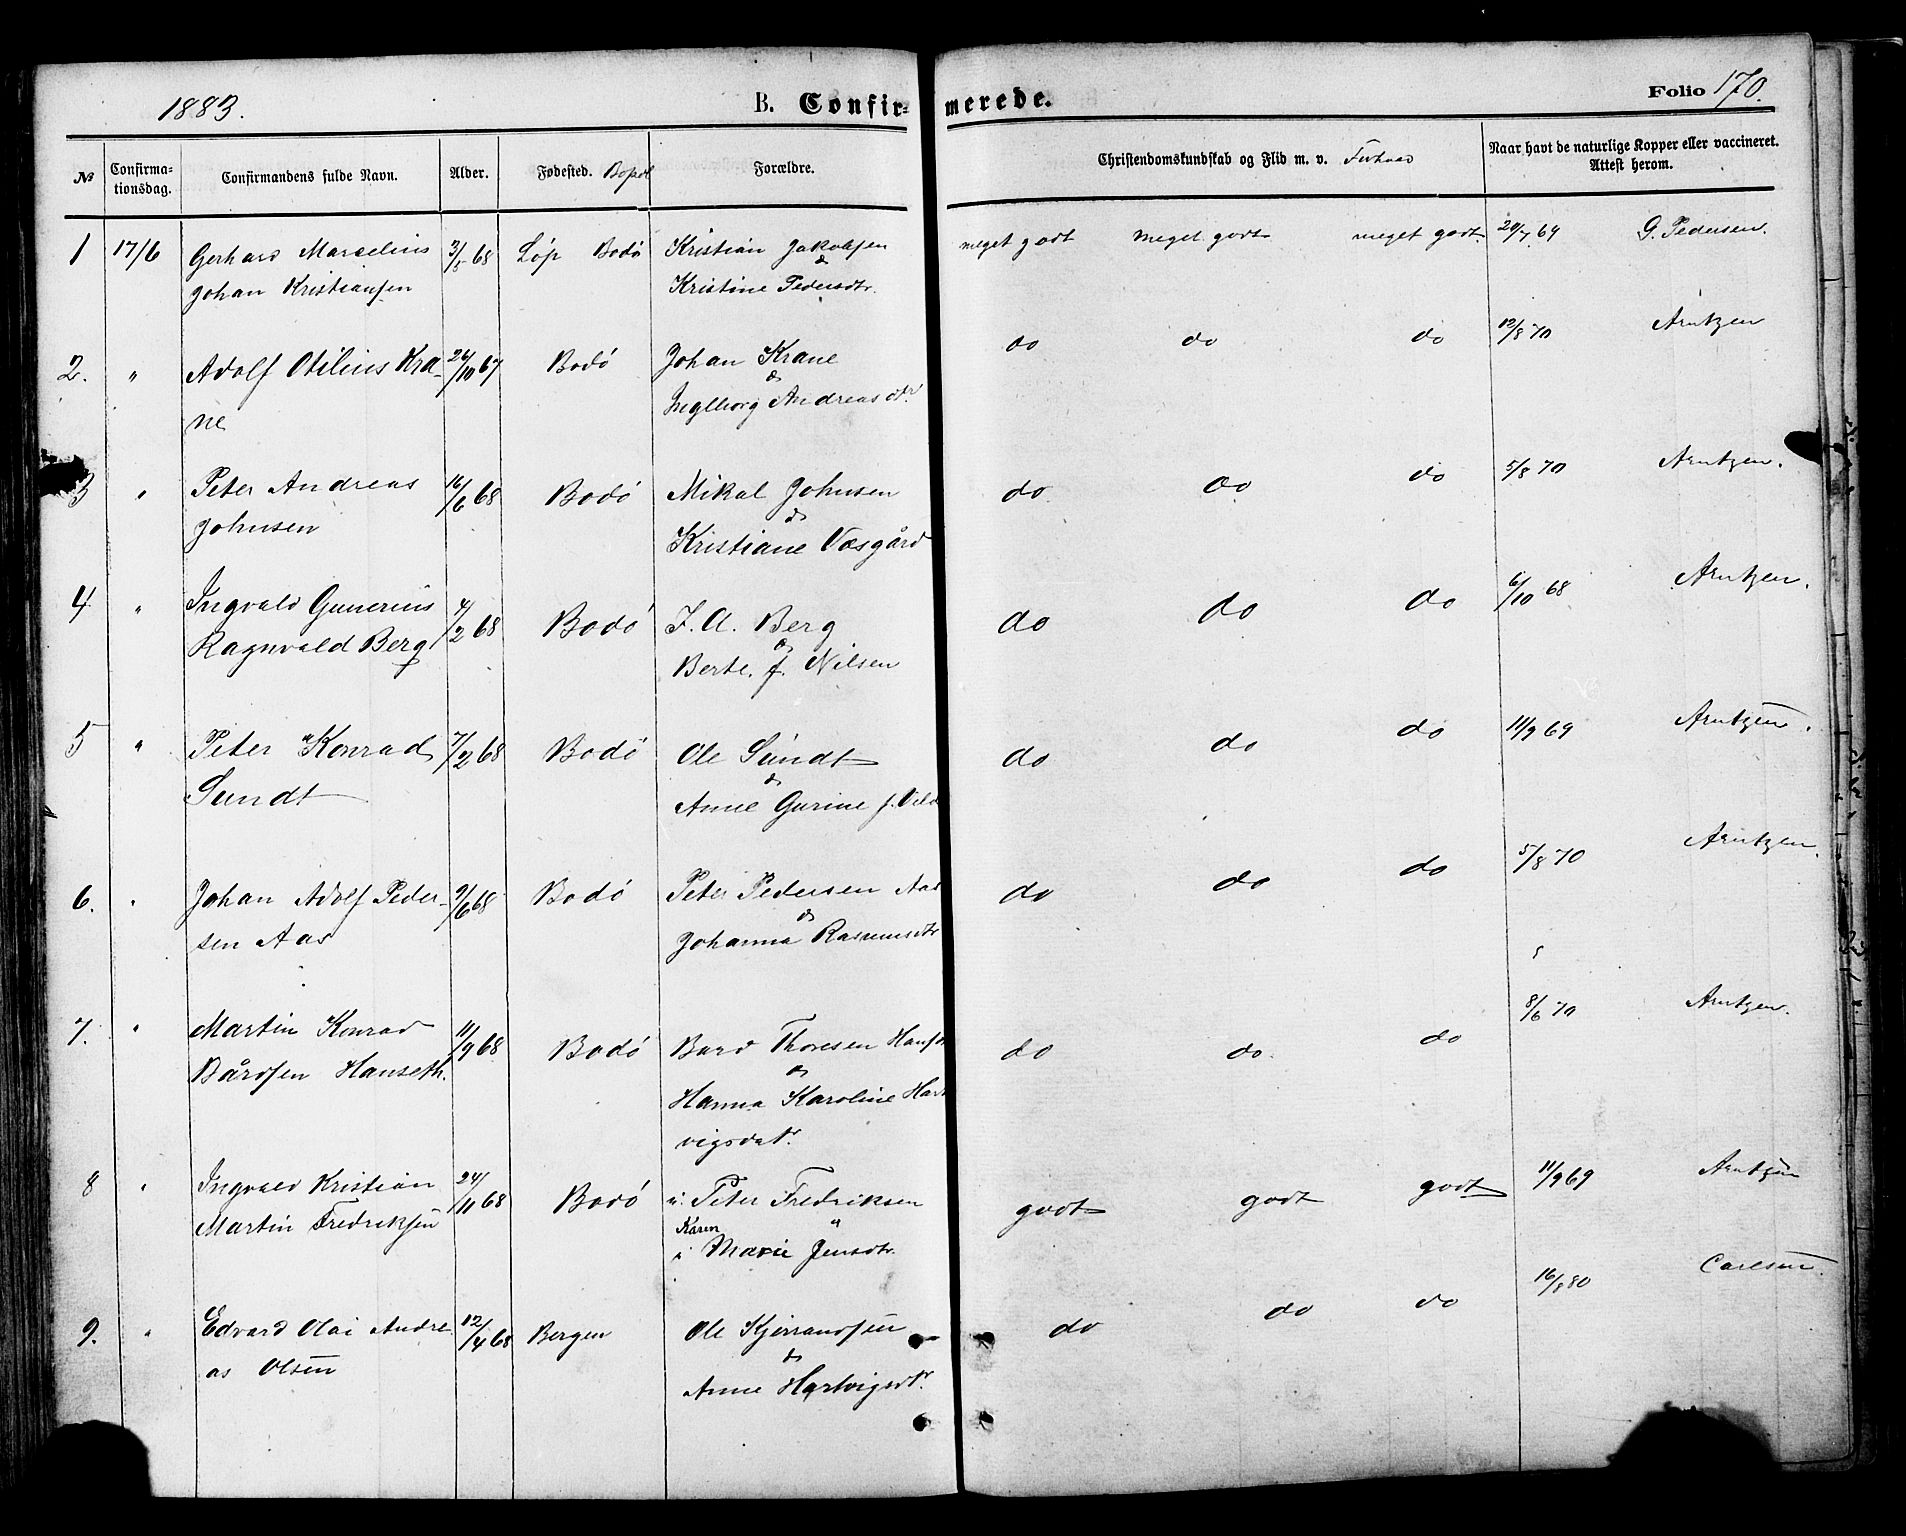 1883.
B. Confir-
merede.
Folio 170.
№ Confirma-tionsdag. Confirmandens fulde Navn. Alder. Fødested. Bopæl Forældre. Christendomskundskab og Flid m. v. Forhold Naar havt de naturlige Kopper eller vaccineret. Attest herom.
1 17/6 Gerhard Marselius 3/5 68 Løp Bodö Kristian Jakobsen meget godt meget godt meget godt. 20/7 69 G. Pedersen.
Johan Kristiansen & Kristine Pedersdtr.
2. " Adolf Otilius Kra- 26/10 67 Bodö Johan Krane do do do 12/8 70 Arntzen
ne & Ingeborg Andreasdtr.
3 " Peter Andreas 16/6 68 Bodö Mikal Johnsen do do do 5/8 70 Arntzen.
Johnsen & Kristiane Væsgård
4 " Ingvald Gunerius 4/2 68 Bodö J. A. Berg do do do 6/10 68 Arntzen.
Ragnvald Berg & Berte. f. Nilsen
5 " Peter Konrad 7/2 68 Bodö Ole Sundt do do do 11/9 69 Arntzen.
Sundt & Anne Gurine f. Vild
6. " Johan Adolf Peder- 9/6 68 Bodö Peter Pedersen Aas do do do 5/8 70 Arntzen.
sen Aas & Johanna Rasmusdtr
7. " Martin Konrad 11/9 68 Bodö Bard Thoresen Hanse do do do 8/6 70 Arntzen.
Bårdsen Hanseth. & Hanna Karoline Hart
vigsdatr.
8 " Ingvald Kristian 24/11 68 Bodö u. Peter Fredriksen godt godt godt 11/9 69 Arntzen
Martin Fredriksen " Karen
p Marie Jensdtr.
9. " Edvard Olai Andre 12/4 68 Bergen Ole Kjerrandsen do do do 16/8 80 Carlsen.
as Olsen & Anne Hartvigsdtr.